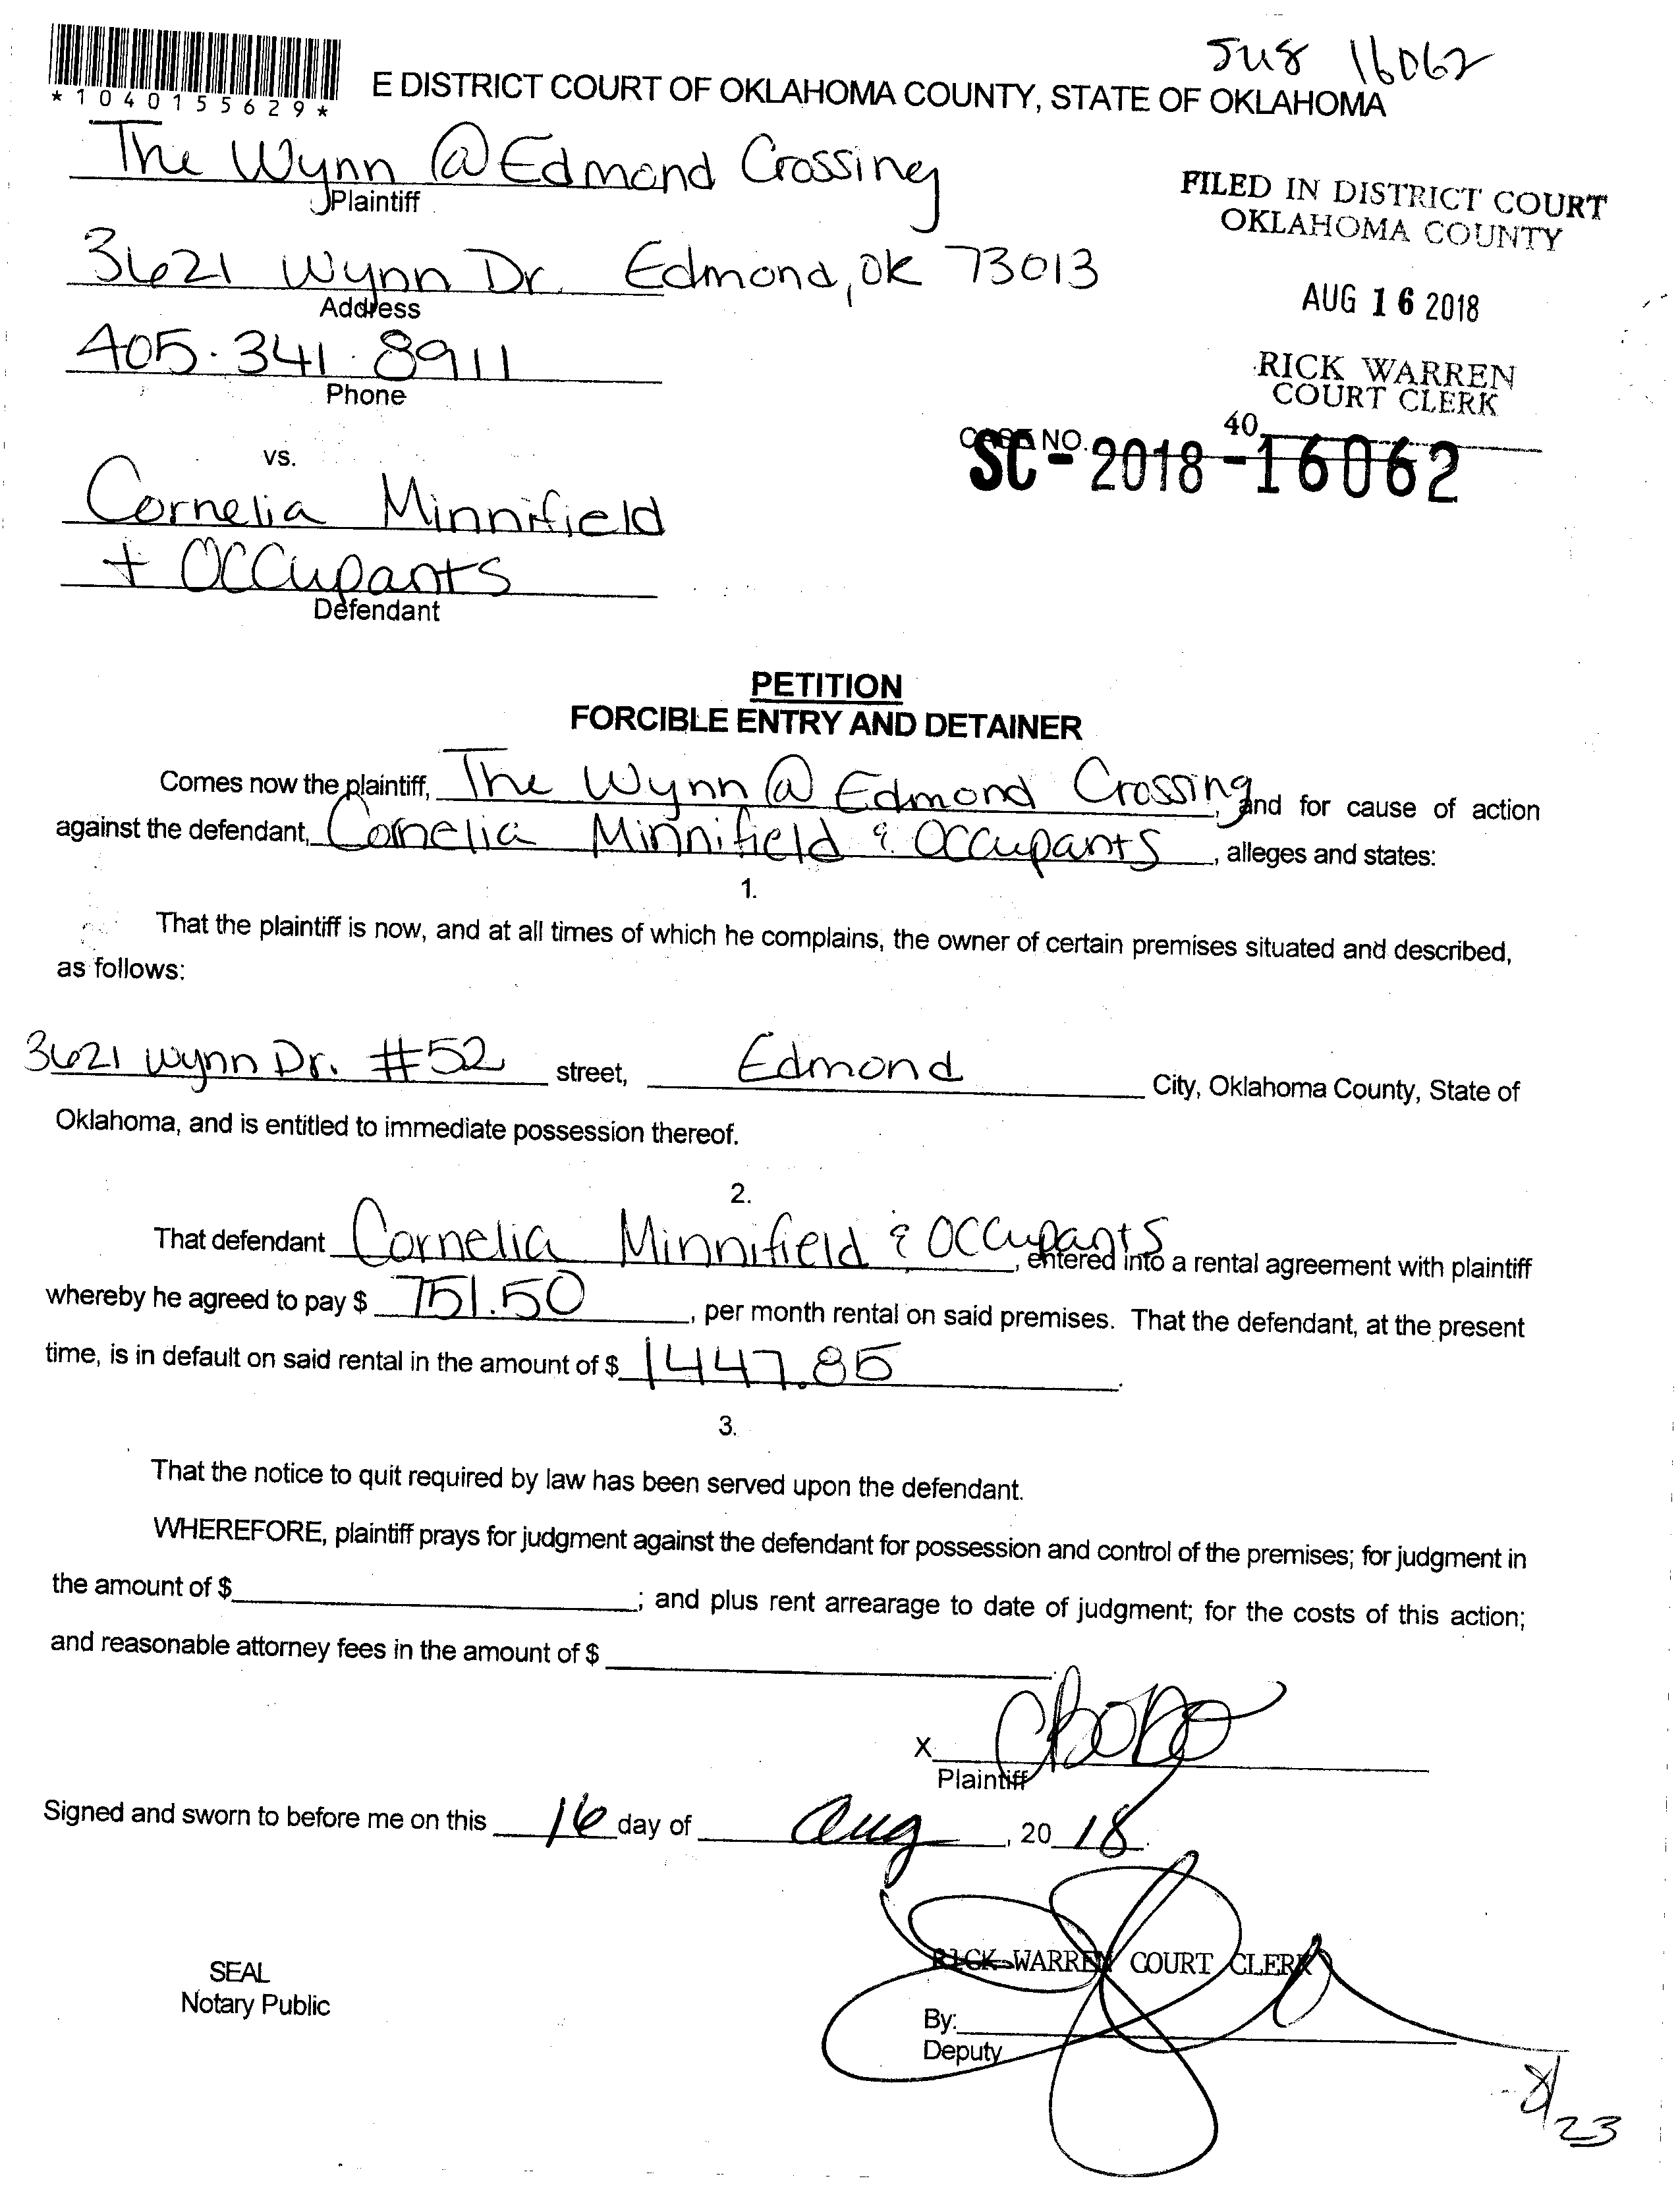 su8 16062
*1040155629*
E DISTRICT COURT OF OKLAHOMA COUNTY, STATE OF OKLAHOMA
The Wynn @ Edmond Crossing
Plaintiff
3621 Wynn Dr. Edmond, OK 73013
Address
405.341.8911
Phone
FILED IN DISTRICT COURT
OKLAHOMA COUNTY
AUG 16 2018
RICK WARREN
COURT CLERK
40
CASE NO.
SC-2018-16062
vs.
Cornelia Minnifield
+ OCCupants
Defendant
PETITION
FORCIBLE ENTRY AND DETAINER
Comes now the plaintiff, The Wynn @ Edmond Crossing, and for cause of action
against the defendant, Cornelia Minnifield & OCCupants, alleges and states:
1.
That the plaintiff is now, and at all times of which he complains, the owner of certain premises situated and described,
as follows:
3621 Wynn Dr. #52 street, Edmond City, Oklahoma County, State of
Oklahoma, and is entitled to immediate possession thereof.
2.
That defendant Cornelia Minnifield & OCCupants, entered into a rental agreement with plaintiff
whereby he agreed to pay $ 751.50, per month rental on said premises. That the defendant, at the present
time, is in default on said rental in the amount of $ 1447.85.
3.
That the notice to quit required by law has been served upon the defendant.
WHEREFORE, plaintiff prays for judgment against the defendant for possession and control of the premises; for judgment in
the amount of $ ; and plus rent arrearage to date of judgment; for the costs of this action;
and reasonable attorney fees in the amount of $
X
Plaintiff
Signed and sworn to before me on this 16 day of Aug, 2018.
SEAL
Notary Public
RICK WARREN COURT CLERK
By:
Deputy
8/23